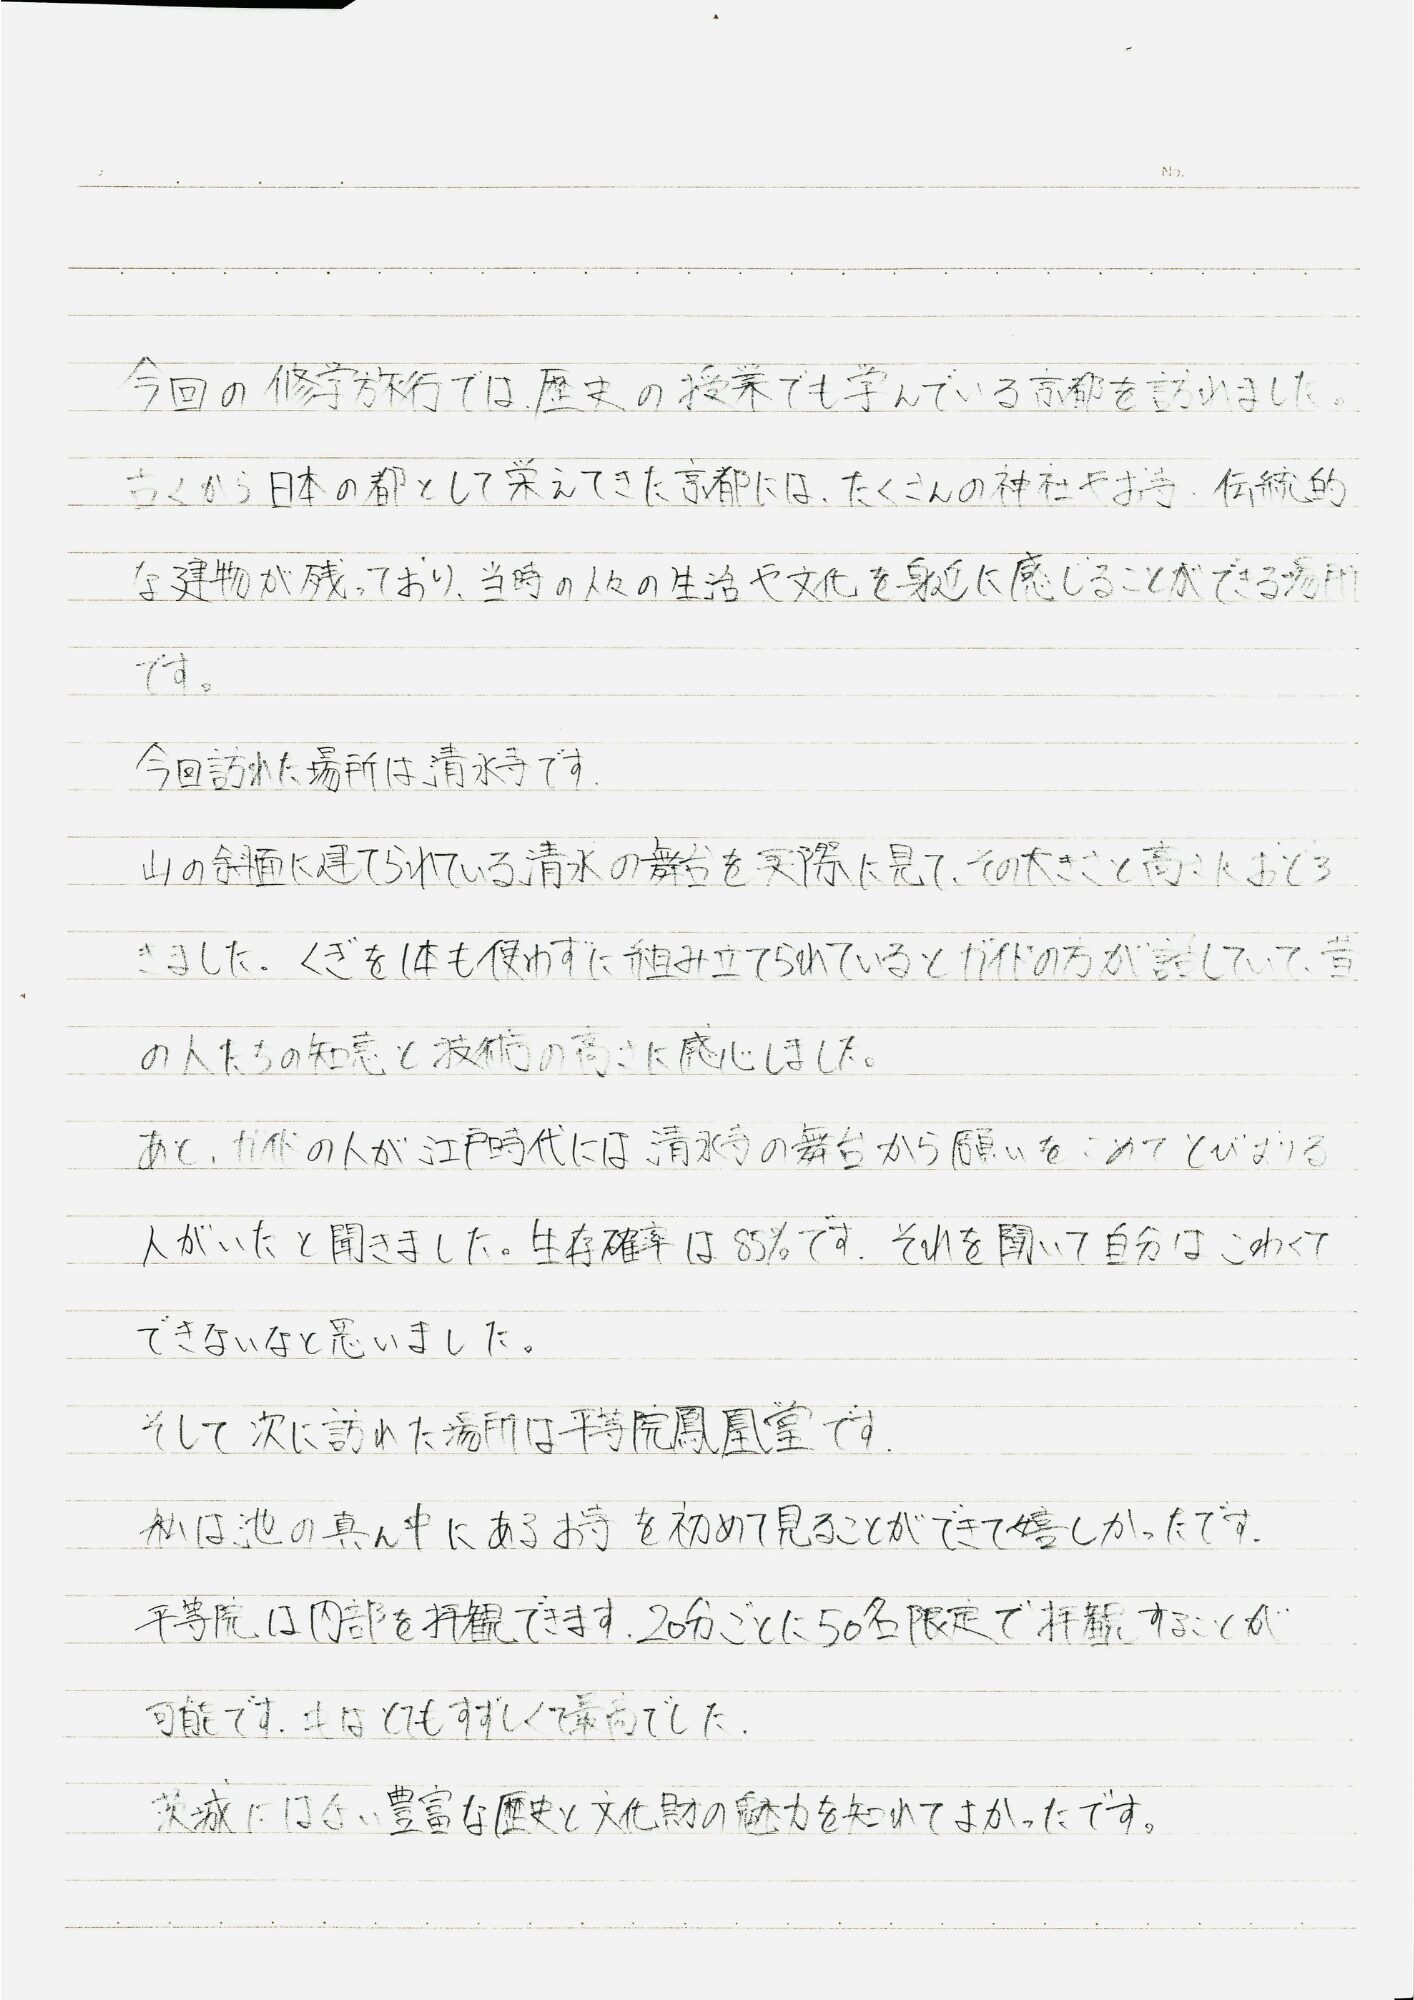 No.
今回の修学旅行では、歴史の授業でも学んでいる京都を訪れました。
古くから日本の都として栄えてきた京都には、たくさんの神社やお寺、伝統的
な建物が残っており、当時の人々の生活や文化を身近に感じることができる場所
です。
今回訪れた場所は清水寺です。
山の斜面に建てられている清水の舞台を実際に見て、その大きさと高さにおどろ
きました。くぎを1本も使わずに組み立てられているとガイドの方が話していて、昔
の人たちの知恵と技術の高さに感心しました。
あと、ガイドの人が江戸時代には清水寺の舞台から願いをこめてとびおりる
人がいたと聞きました。生存確率は85%です。それを聞いて自分はこわくて
できないなと思いました。
そして次に訪れた場所は平等院鳳凰堂です。
私は池の真ん中にあるお寺を初めて見ることができて嬉しかったです。
平等院は内部を拝観できます。20分ごとに50名限定で拝観することが
可能です。中はとてもすずしくて最高でした。
茨城にはない豊富な歴史と文化財の魅力を知れてよかったです。